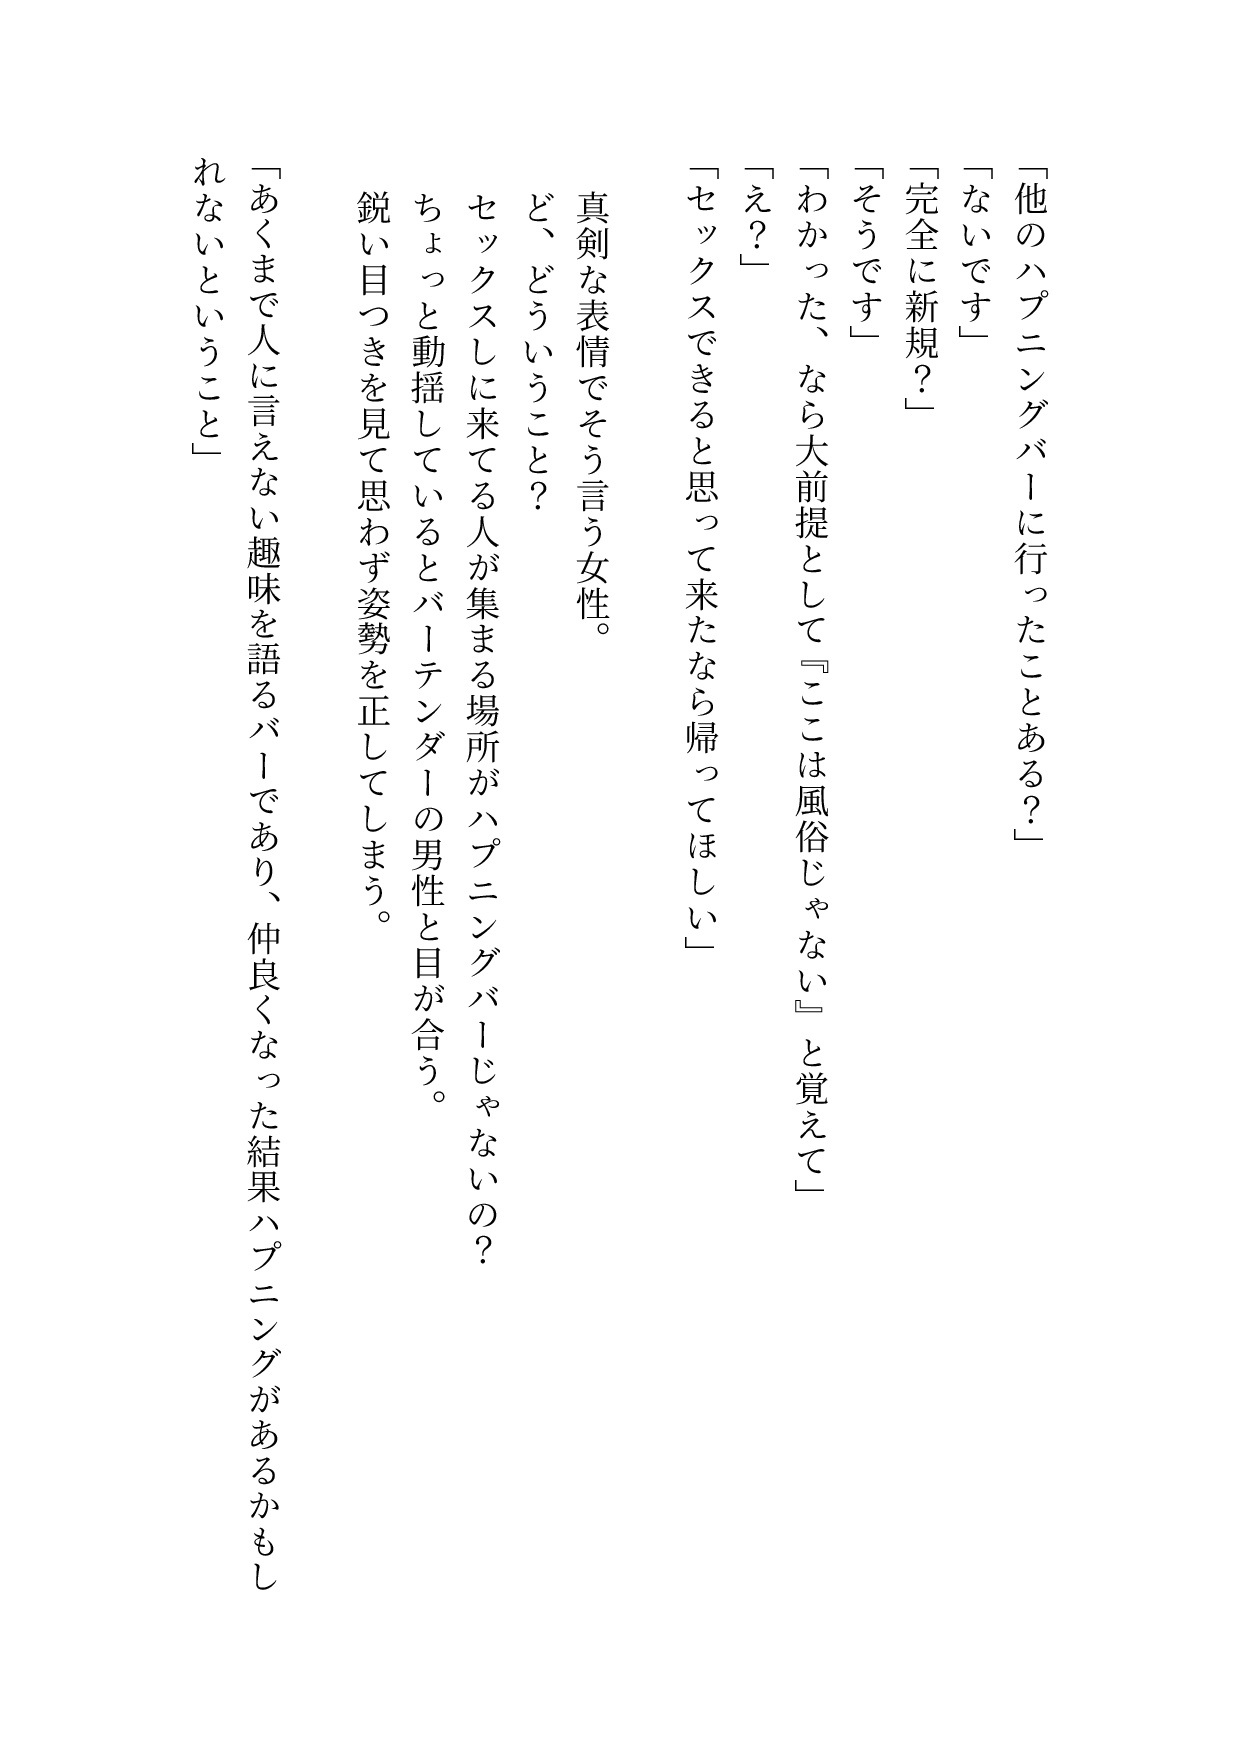 「他のハプニングバーに行ったことある？」
「ないです」
「完全に新規？」
「そうです」
「わかった、なら大前提として『ここは風俗じゃない』と覚えて」
「え？」
「セックスできると思って来たなら帰ってほしい」
真剣な表情でそう言う女性。
ど、どういうこと？
セックスしに来てる人が集まる場所がハプニングバーじゃないの？
ちょっと動揺しているとバーテンダーの男性と目が合う。
鋭い目つきを見て思わず姿勢を正してしまう。
「あくまで人に言えない趣味を語るバーであり、仲良くなった結果ハプニングがあるかもし
れないということ」